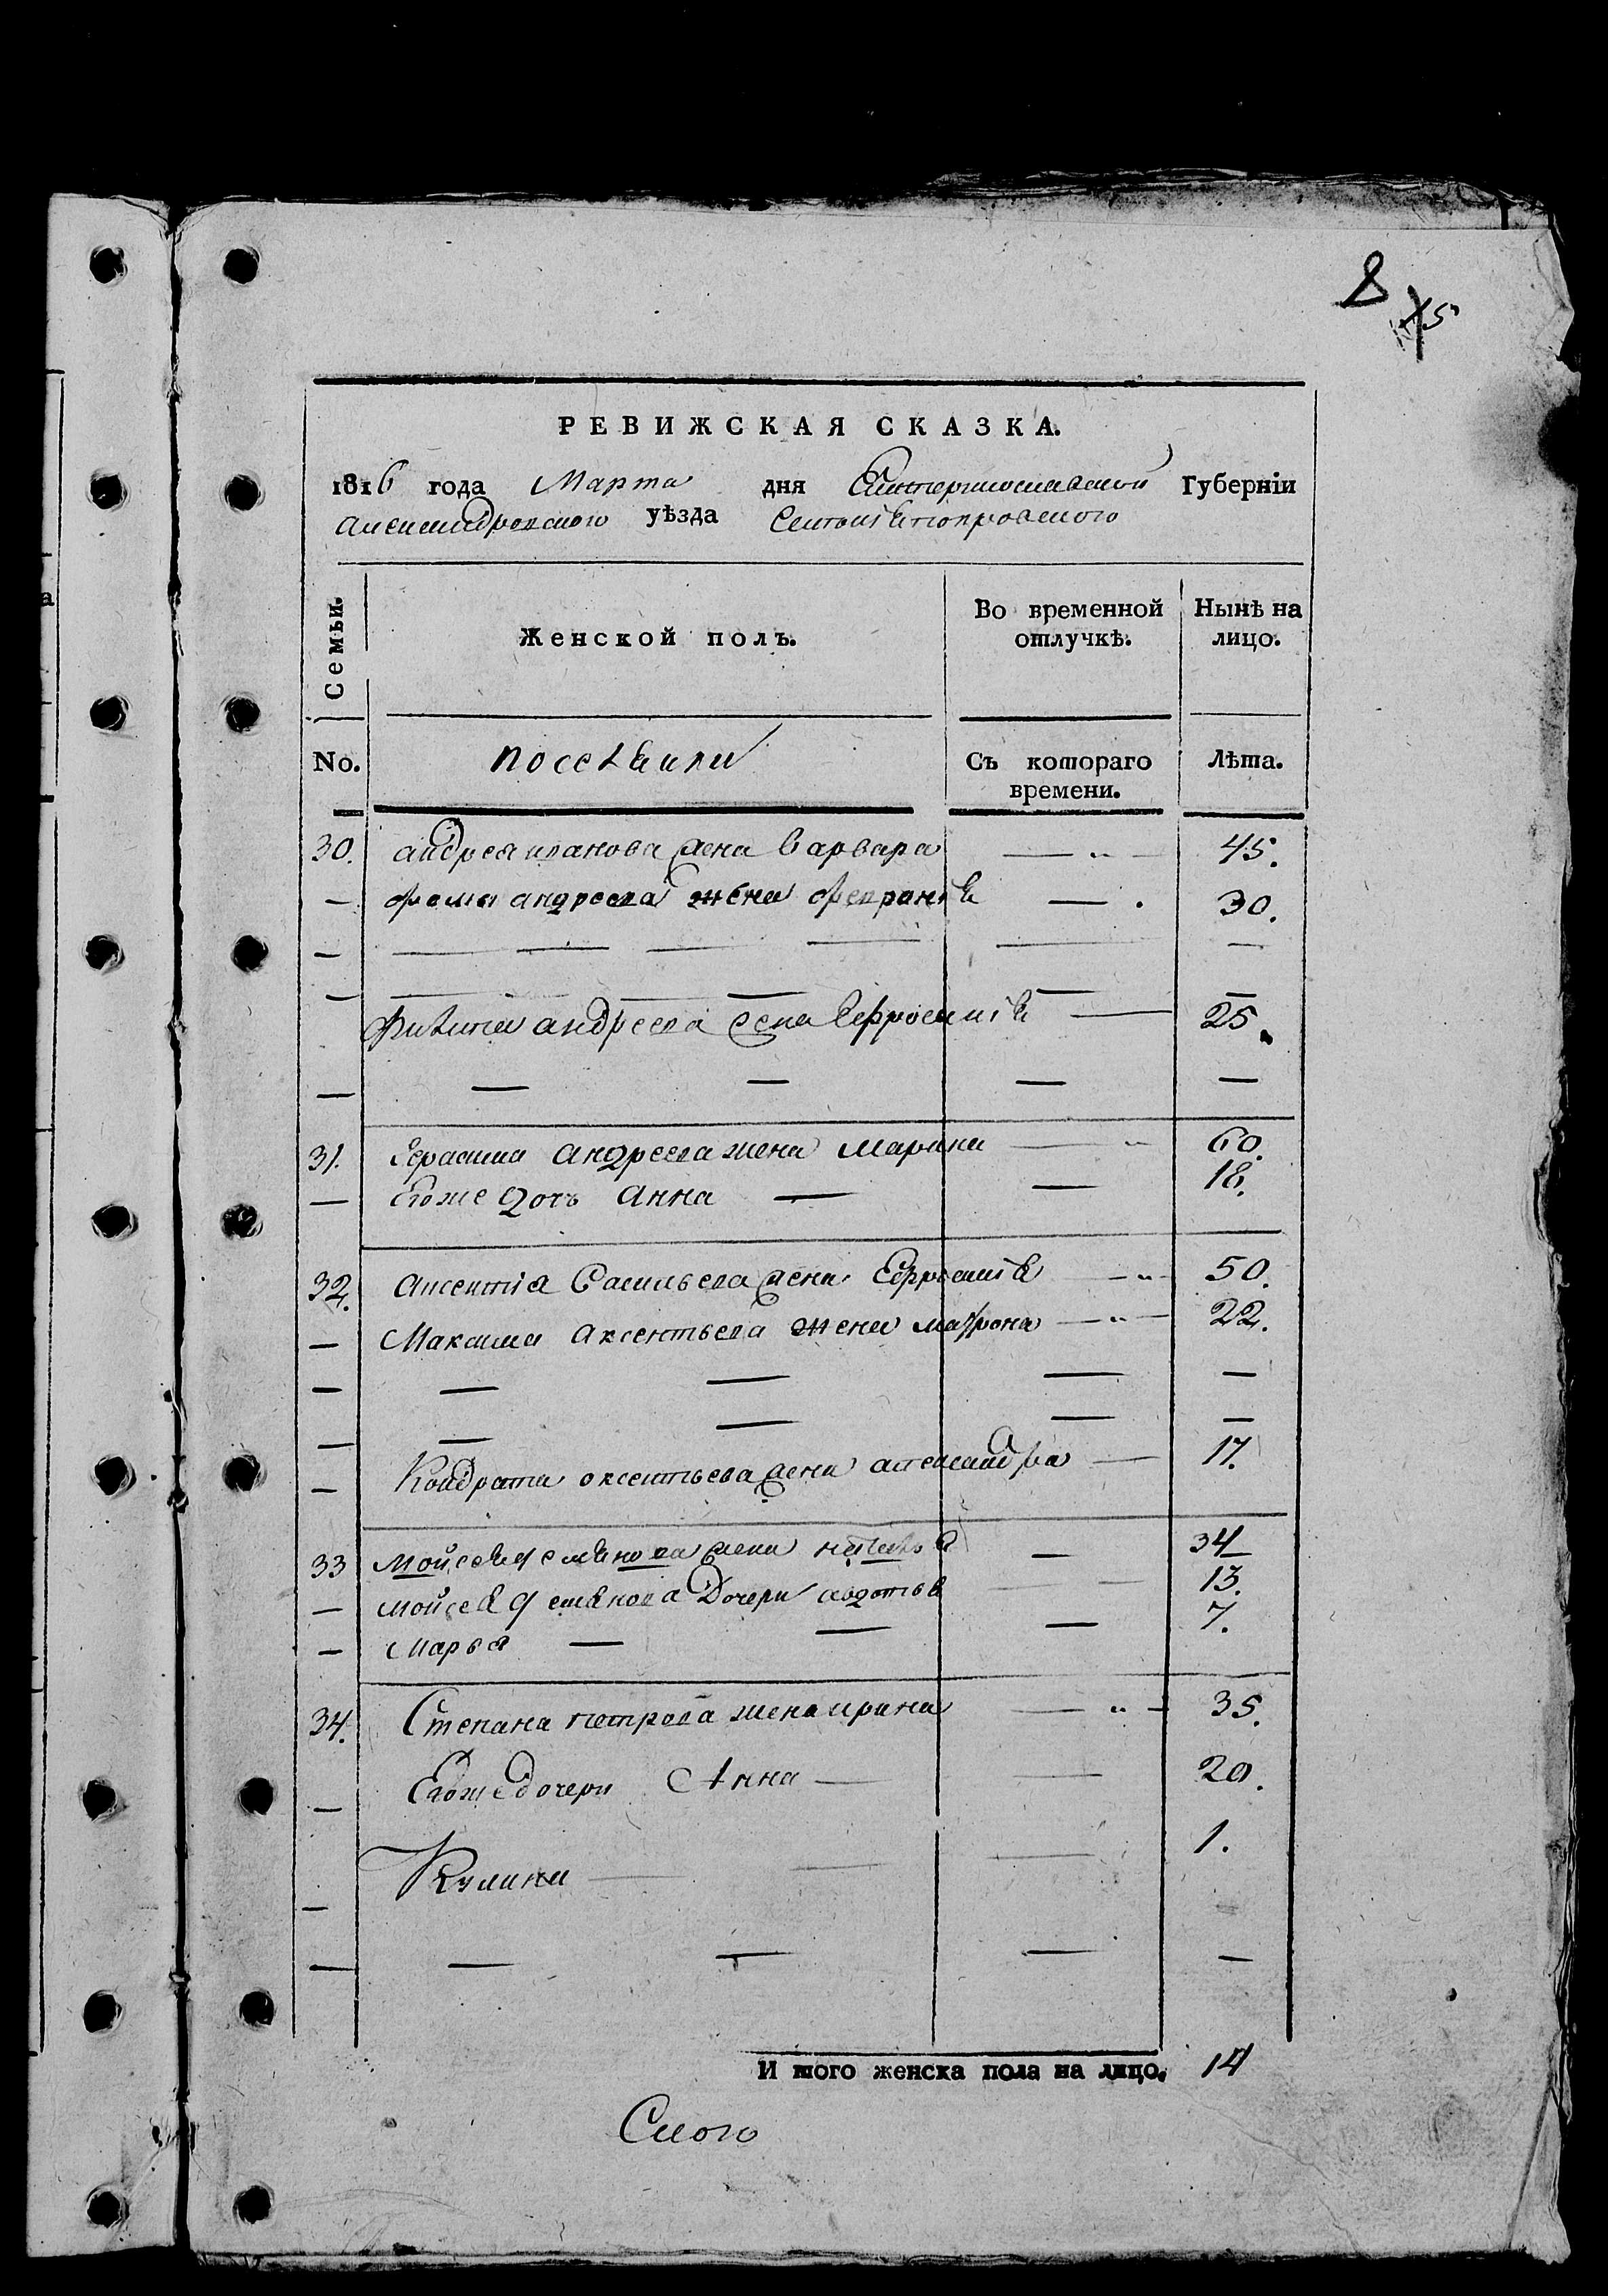 8
75
РЕВИЖСКАЯ СКАЗКА.
1816 года Марта дня Екатеринославской Губерніи
Александровского уѣзда Селоизѣтопровского
Семьи.
Женской полъ.
Во временной отлучкѣ.
Нынѣ на лицо.
No.
Съ котораго времени.
Лѣта.
30. андрея иванова жена варвара 45.
— фомы андреева жена февраніѣ 30.
Филипа андреева жена Ефросиніѣ 25.
31. Герасима андреева жена Марина 60.
— Егоже дочь Анна 18.
32. Аксентія Васильева жена Ефросиніѣ 50.
— Максима Аксентьева жена матрона 22.
— Кондрата оксентьева жена александра 17.
33 Мойсея семѣнова жена 34
— мойсея семѣнова Дочери авдотья 13.
— Марья 7.
34. Степана петрова жена ирина 35.
— Егоже дочери Анна 20.
Кулина 1.
И того женска пола на лицо. 14